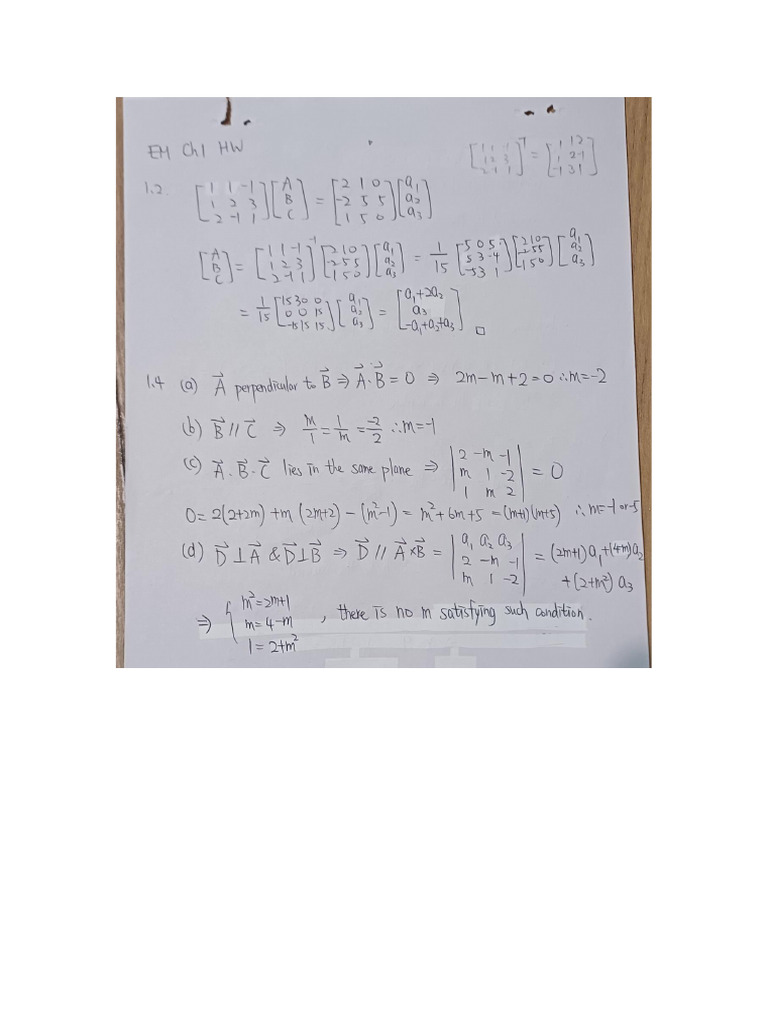 EM Ch1 HW
[1 1 -1; 1 2 3; 2 -1 1]^T = [1 1 2; 1 2 -1; -1 3 1]
1.2. [1 1 -1; 1 2 3; 2 -1 1] [A; B; C] = [2 1 0; -2 5 5; 1 5 0] [a₁; a₂; a₃]
[A; B; C] = [1 1 -1; 1 2 3; 2 -1 1]^-1 [2 1 0; -2 5 5; 1 5 0] [a₁; a₂; a₃] = 1/15 [5 0 5; 5 3 -4; -5 3 1] [2 1 0; -2 5 5; 1 5 0] [a₁; a₂; a₃]
= 1/15 [15 30 0; 0 0 15; -15 15 15] [a₁; a₂; a₃] = [a₁+2a₂; a₃; -a₁+a₂+a₃] □
1.4 (a) A⃗ perpendicular to B⃗ ⇒ A⃗·B⃗ = 0 ⇒ 2m-m+2=0 ∴m=-2
(b) B⃗ // C⃗ ⇒ m/1 = 1/m = -2/2 ∴m=-1
(c) A⃗. B⃗. C⃗ lies in the same plane ⇒ |2 -m -1; m 1 -2; 1 m 2| = 0
0=2(2+2m)+m(2m+2)-(m²-1)=m²+6m+5=(m+1)(m+5) ∴m=-1 or -5
(d) D⃗⊥A⃗ & D⃗⊥B⃗ ⇒ D⃗ // A⃗×B⃗ = |a₁ a₂ a₃; 2 -m -1; m 1 -2| = (2m+1)a₁+(4-m)a₂
+(2+m²)a₃
⇒ { m²=2m+1
m=4-m , there is no m satisfying such condition.
1=2+m²